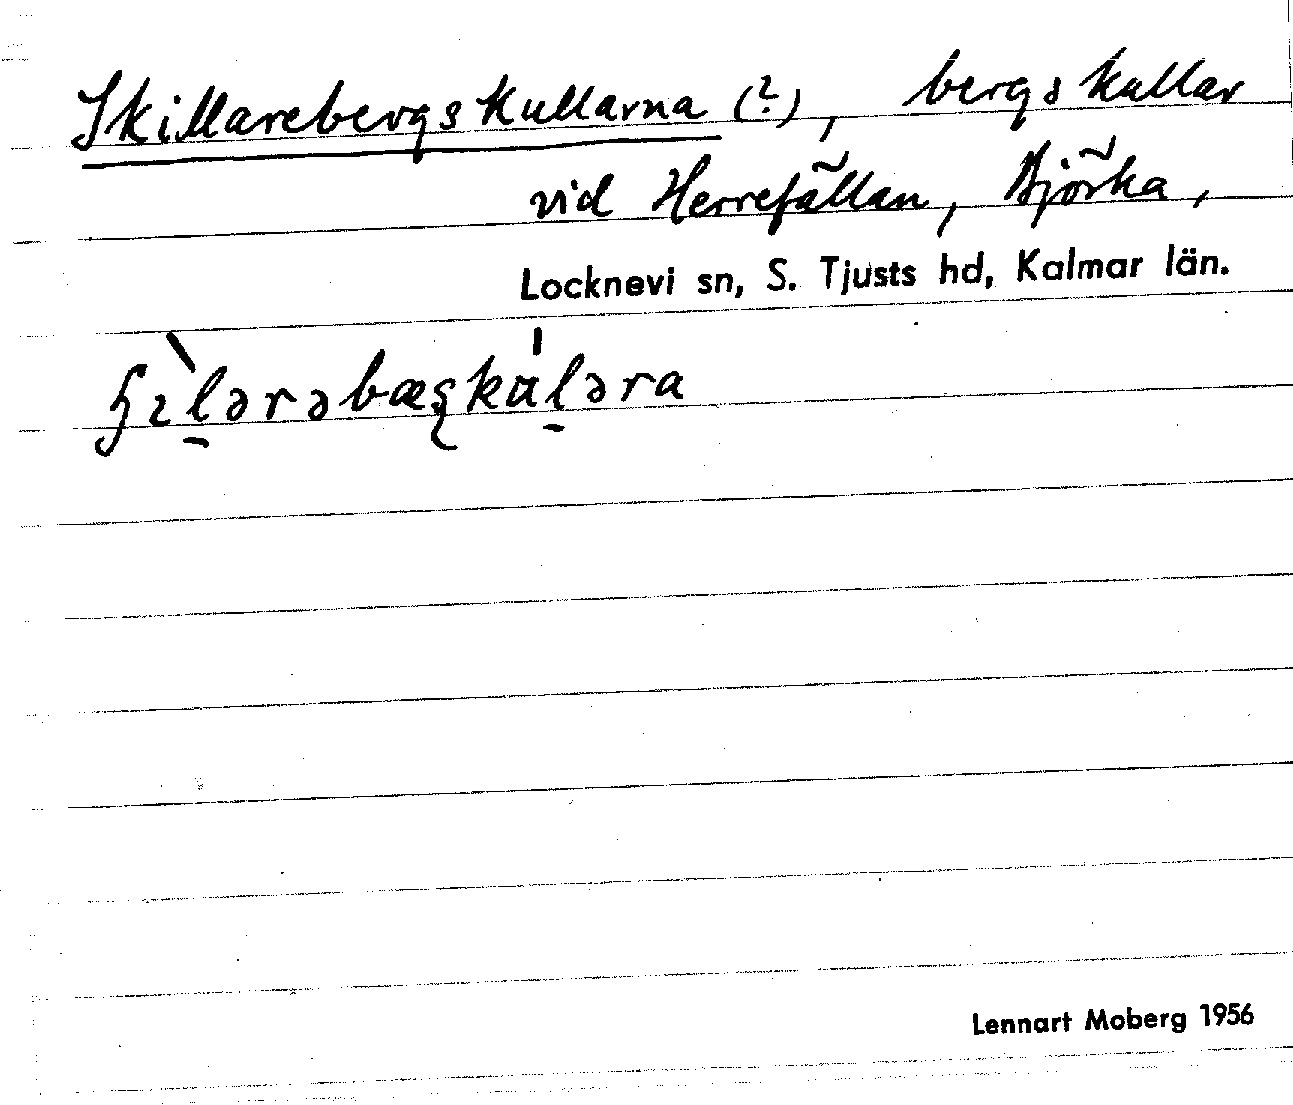 Skillarebergskullarna (?), bergskullar
vid Herrefällan, Björka,
Locknevi sn, S. Tjusts hd, Kalmar län.
Lennart Moberg 1956